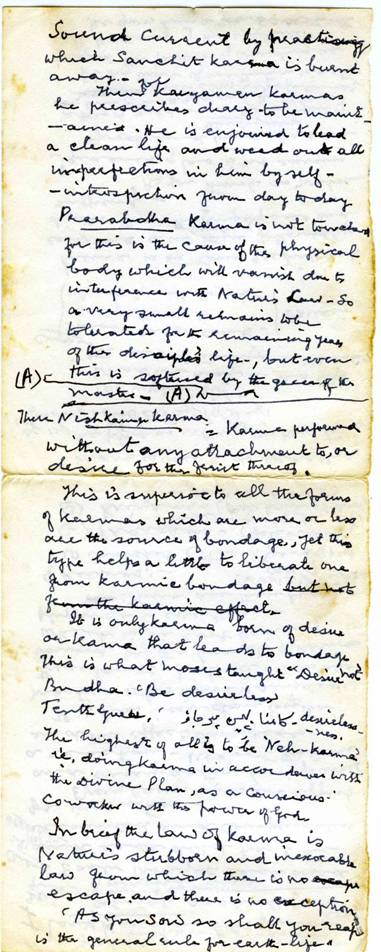 Sound Current by practising
which Sanchit karma is burnt
away.
Then for Kryaman Karmas
he prescribes diary to be maint-
-ained. He is enjoined to lead
a clean life and weed out all
imperfections in him by self-
-introspection from day to day
Praarabdha Karma is not touched
for this is the cause of the physical
body which will vanish due to
interference with Nature's Law. So
a very small remains to be
tolerated for the remaining years
of the disciple's life, but even
(A) this is softened by the grace of the
master - (A)
There Nishkama Karma
= Karma performed
without any attachment to, or
desire for the fruit thereof.
This is superior to all the forms
of karmas which are more or less
are the source of bondage, yet this
type helps a little to liberate one
from karmic bondage but not
from the karmic effect.
It is only karma born of desire
or kama that leads to bondage
This is what Moses taught "Desire not"
Buddha. "Be desireless
Tenth Guru. desireless-
-nes.
The highest of all is to be 'Neh-karma'
ie, doing karma in accordance with
the Divine Plan, as a conscious
coworker with the power of God
In brief the law of karma is
Nature's stubborn and inexorable
law from which there is no escape
escape, and there is no exception
"As you sow so shall you reap"
is the general rule for earth-life